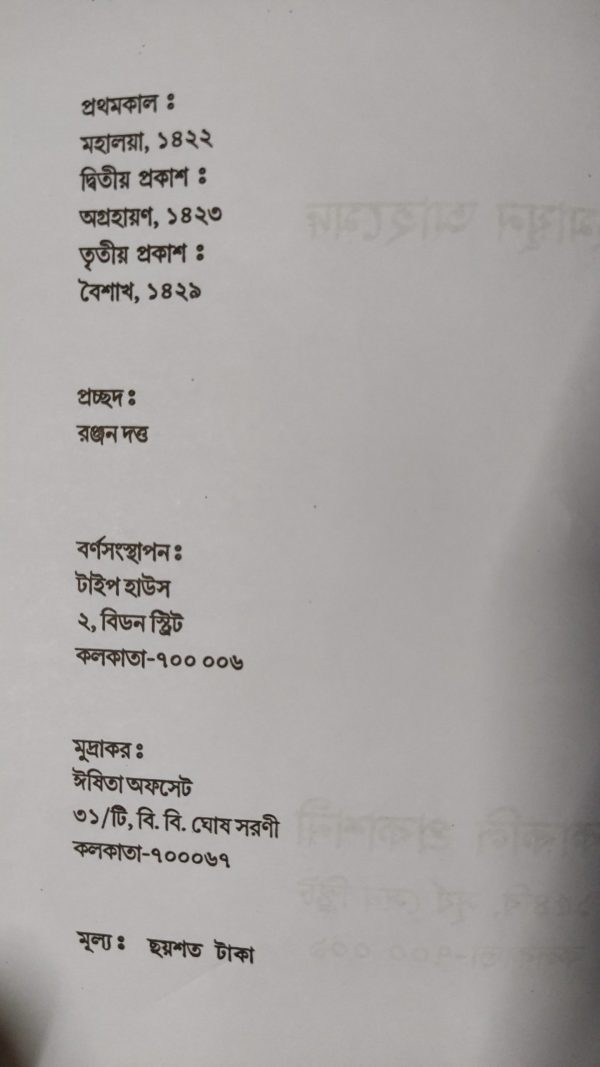 প্রথমকাল :
মহালয়া, ১৪২২
দ্বিতীয় প্রকাশ :
অগ্রহায়ণ, ১৪২৩
তৃতীয় প্রকাশ :
বৈশাখ, ১৪২৯
প্রচ্ছদ :
রঞ্জন দত্ত
বর্ণসংস্থাপন :
টাইপ হাউস
২, বিডন স্ট্রিট
কলকাতা-৭০০ ০০৬
মুদ্রাকর :
ঈষিতা অফসেট
৩১/টি, বি. বি. ঘোষ সরণী
কলকাতা-৭০০০৬৭
মূল্য : ছয়শত টাকা